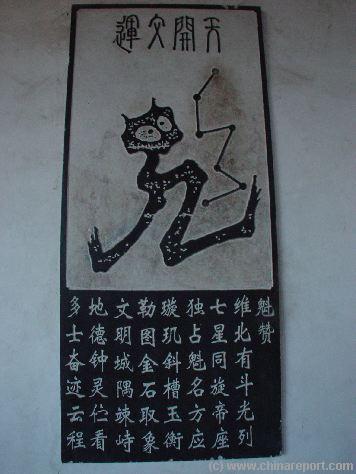 天開文運
魁赞
维北有斗光列
七星同旋帝座
独占魁名方应
璇玑斜槽玉衡
勒图金石取象
文明城隅竦峙
地德钟灵伫看
多士奋迹云程
(c) www.chinareport.com